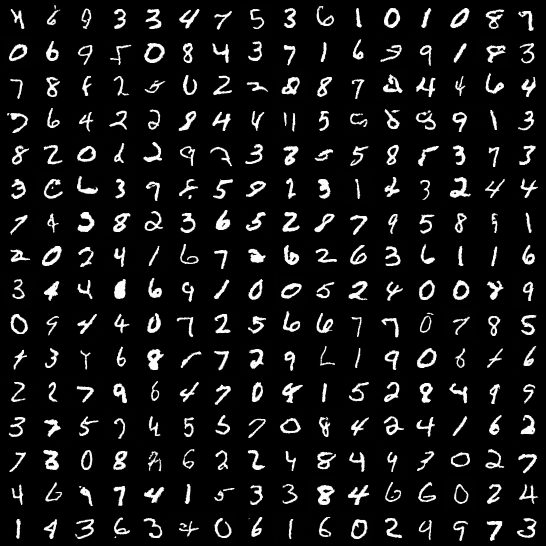 6 9 3 3 4 7 5 3 6 1 0 1 0 8 7
0 6 9 5 0 8 4 3 7 1 6 9 1 8 3
7 8 8 2 5 0 2 2 8 8 7 2 4 4 6 4
7 6 4 2 2 8 4 4 11 5 8 9 1 3
8 2 0 2 2 9 2 3 8 5 5 8 8 3 7 3
3 6 3 9 8 5 8 2 3 1 4 3 2 4 4
7 4 3 8 2 3 6 5 2 8 7 9 5 8 9 1
2 0 2 4 1 6 7 2 6 2 6 3 6 1 1 6
3 4 4 6 9 1 0 0 5 2 4 0 0 8 9
0 9 4 4 0 7 2 5 6 6 7 7 0 7 8 5
7 3 Y 6 8 7 2 9 1 9 0 6 6
2 2 7 9 6 4 7 0 8 1 5 2 8 4 9 9
3 7 5 7 4 5 5 7 0 8 4 2 4 1 6 2
7 3 0 8 6 2 2 4 8 4 9 3 0 2 7
4 6 9 7 4 1 5 3 3 8 4 6 6 0 2 4
1 4 3 6 3 4 0 6 1 6 0 2 9 9 7 3